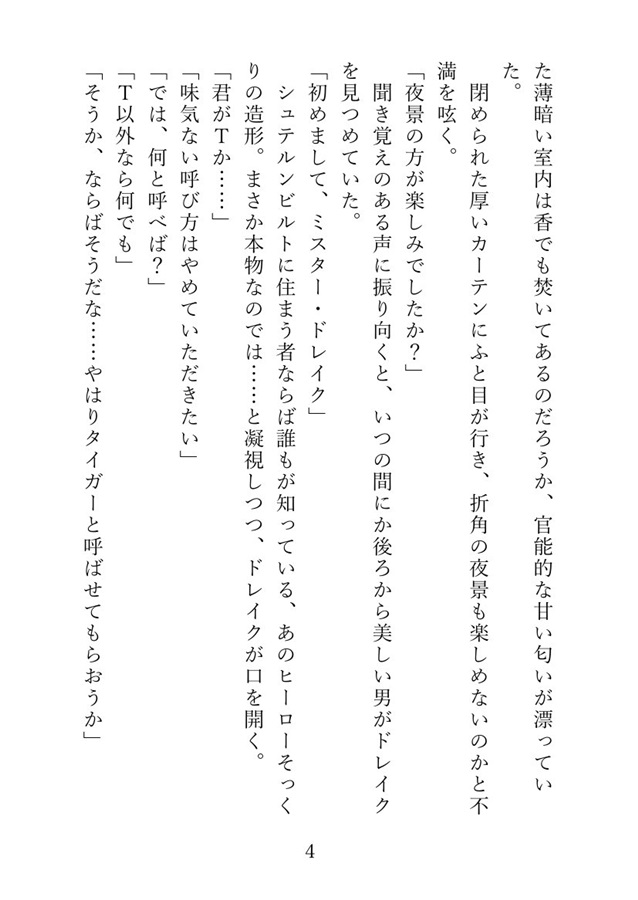 た薄暗い室内は香でも焚いてあるのだろうか、官能的な甘い匂いが漂ってい
た。
　閉められた厚いカーテンにふと目が行き、折角の夜景も楽しめないのかと不
満を呟く。
「夜景の方が楽しみでしたか？」
　聞き覚えのある声に振り向くと、いつの間にか後ろから美しい男がドレイク
を見つめていた。
「初めまして、ミスター・ドレイク」
　シュテルンビルトに住まう者ならば誰もが知っている、あのヒーローそっく
りの造形。まさか本物なのでは……と凝視しつつ、ドレイクが口を開く。
「君がＴか……」
「味気ない呼び方はやめていただきたい」
「では、何と呼べば？」
「Ｔ以外なら何でも」
「そうか、ならばそうだな……やはりタイガーと呼ばせてもらおうか」
4